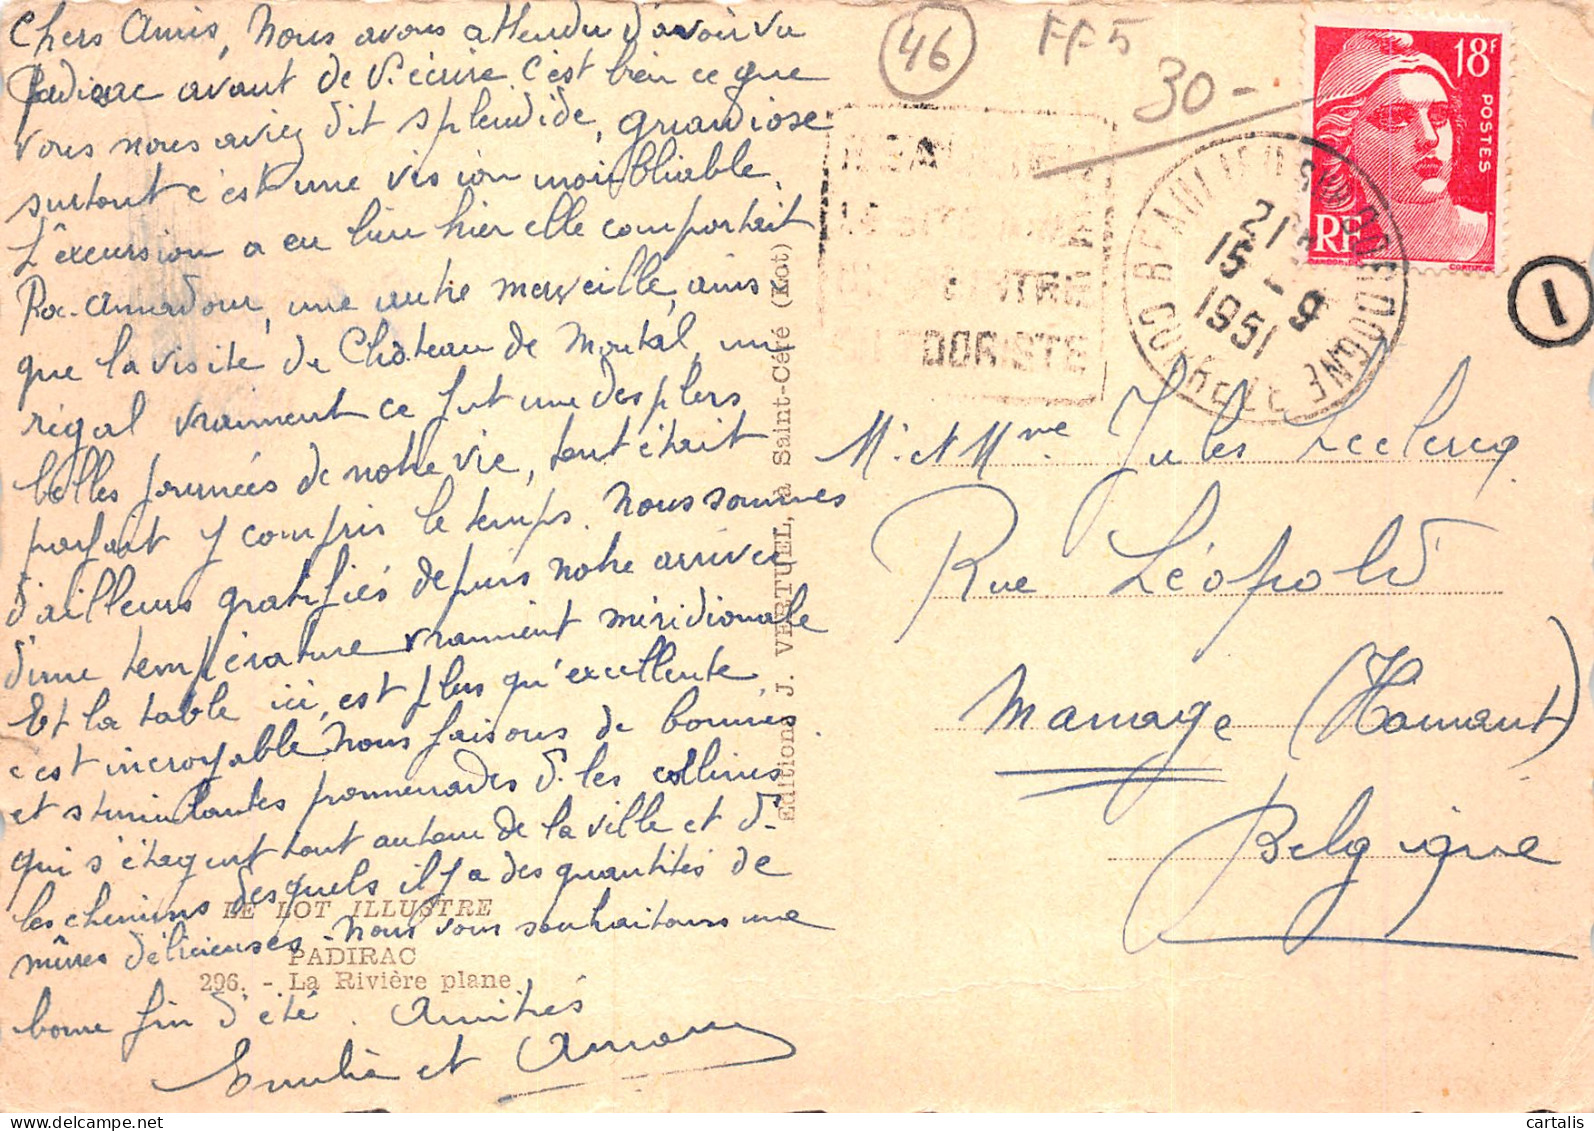 Chers Amis, Nous avons attendu d'avoir vu
Padirac avant de v. écrire c'est bien ce que
vous nous aviez dit splendide, grandiose
surtout c'est une vision inoubliable.
L'excursion a eu lieu hier elle comportait
Roc-Amadour, une autre merveille, ainsi
que la visite du Château de Montal, un
régal vraiment ce fut une des plus
belles journées de notre vie, tout était
parfait y compris le temps. Nous sommes
d'ailleurs gratifiés depuis notre arrivée
d'une température vraiment méridionale
Et la table ici, est plus qu'excellente,
c'est incroyable Nous faisons de bonnes
et stimulantes promenades d. les collines
qui s'étagent tout autour de la ville et d.
les chemins desquels il y a des quantités de
mûres délicieuses. Nous vous souhaitons une
bonne fin d'été. Amitiés
Emilie et
LE LOT ILLUSTRE
PADIRAC
296. - La Rivière plane
Editions J. VERTUEL, à Saint-Céré (Lot)
46
FF5
30-
18F
POSTES
RF
21
15 - 9
1951
CORRÈZE
DORISTE
1
Mr et Mme Jules Leclercq
Rue Léopold
Manage (Hainaut)
Belgique
cartalis | Delcampe.net